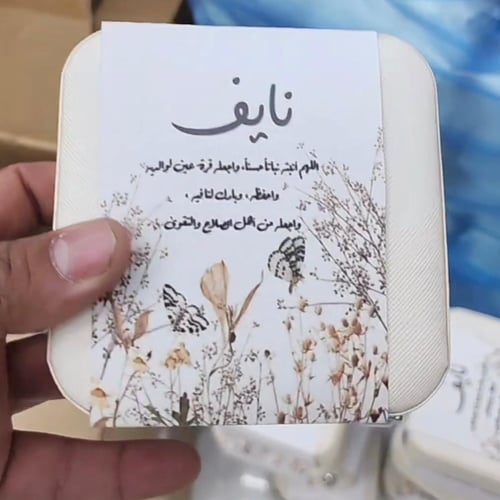 نايف
اللهم انبته نباتاً حسناً، واجعله قرة عين لوالديه
واحفظه ، وبارك لنا فيه ،
واجعله من أهل الصلاح والتقوى
نايف